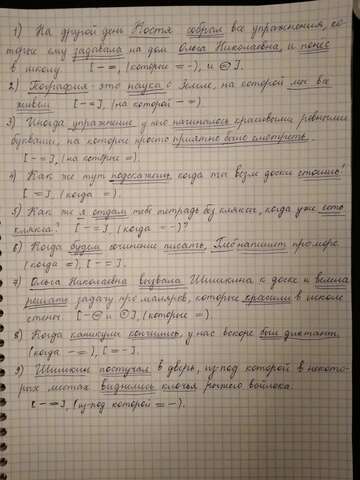 1) На другой день Костя собрал все упражнения, ко-
торые ему задавала на дом Ольга Николаевна, и понёс
в школу. [ - =, (которые = -), и ⊜ ].
2) География - это наука о Земле, на которой мы все
живём. [ - = ], (на которой - =)
3) Иногда упражнение у него начиналось красивыми ровными
буквами, на которые просто приятно было смотреть
[ - = ], (на которые =).
4) Как же тут подскажешь, когда ты возле доски стоишь?
[ = ], (когда - =).
5) Как же я отдам тебе тетрадь без кляксы, когда уже есть
клякса? [ - = ], (когда = -)?
6) Когда будем сочинение писать, Глеб напишет про море.
(когда =), [ - = ].
7) Ольга Николаевна вызвала Шишкина к доске и велела
решать задачу про маляров, которые красили в школе
стены. [ - ⊜ и ⊜ ], (которые =).
8) Когда каникулы кончились, у нас вскоре был диктант.
(когда - =), [ = - ].
9) Шишкин постучал в дверь, из-под которой в некото-
рых местах виднелись клочья рыжего войлока.
[ - = ], (из-под которой = -).